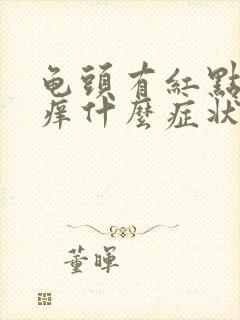 龟頭有紅點
痒什麼症狀
董暉